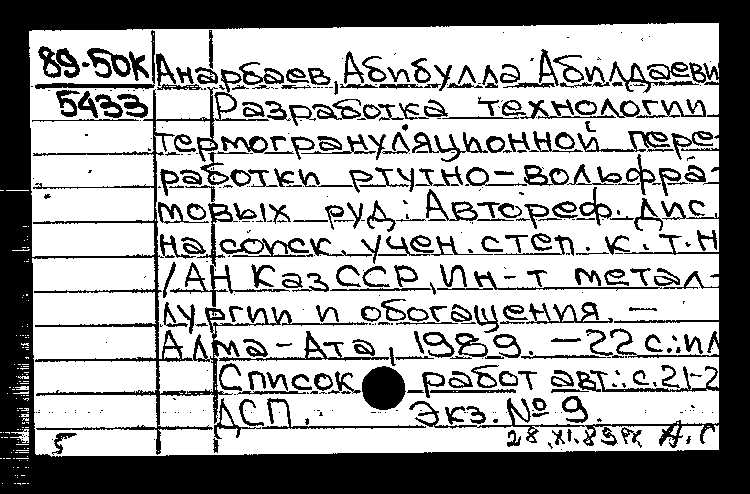 89-50К Анарбаев, Абибулла Абилдаеви
5433 Разработка технологии
термогрануляционной пере-
работки ртутно-вольфра-
мовых руд: Автореф. дис.
на соиск. учен. степ. к.т.н
/АН КазССР, Ин-т метал-
лургии и обогащения. —
Алма-Ата, 1989. — 22 с.: ил
Список работ авт.: с. 21-2
ДСП. Экз. № 9.
5 28.XI.89 А.Г